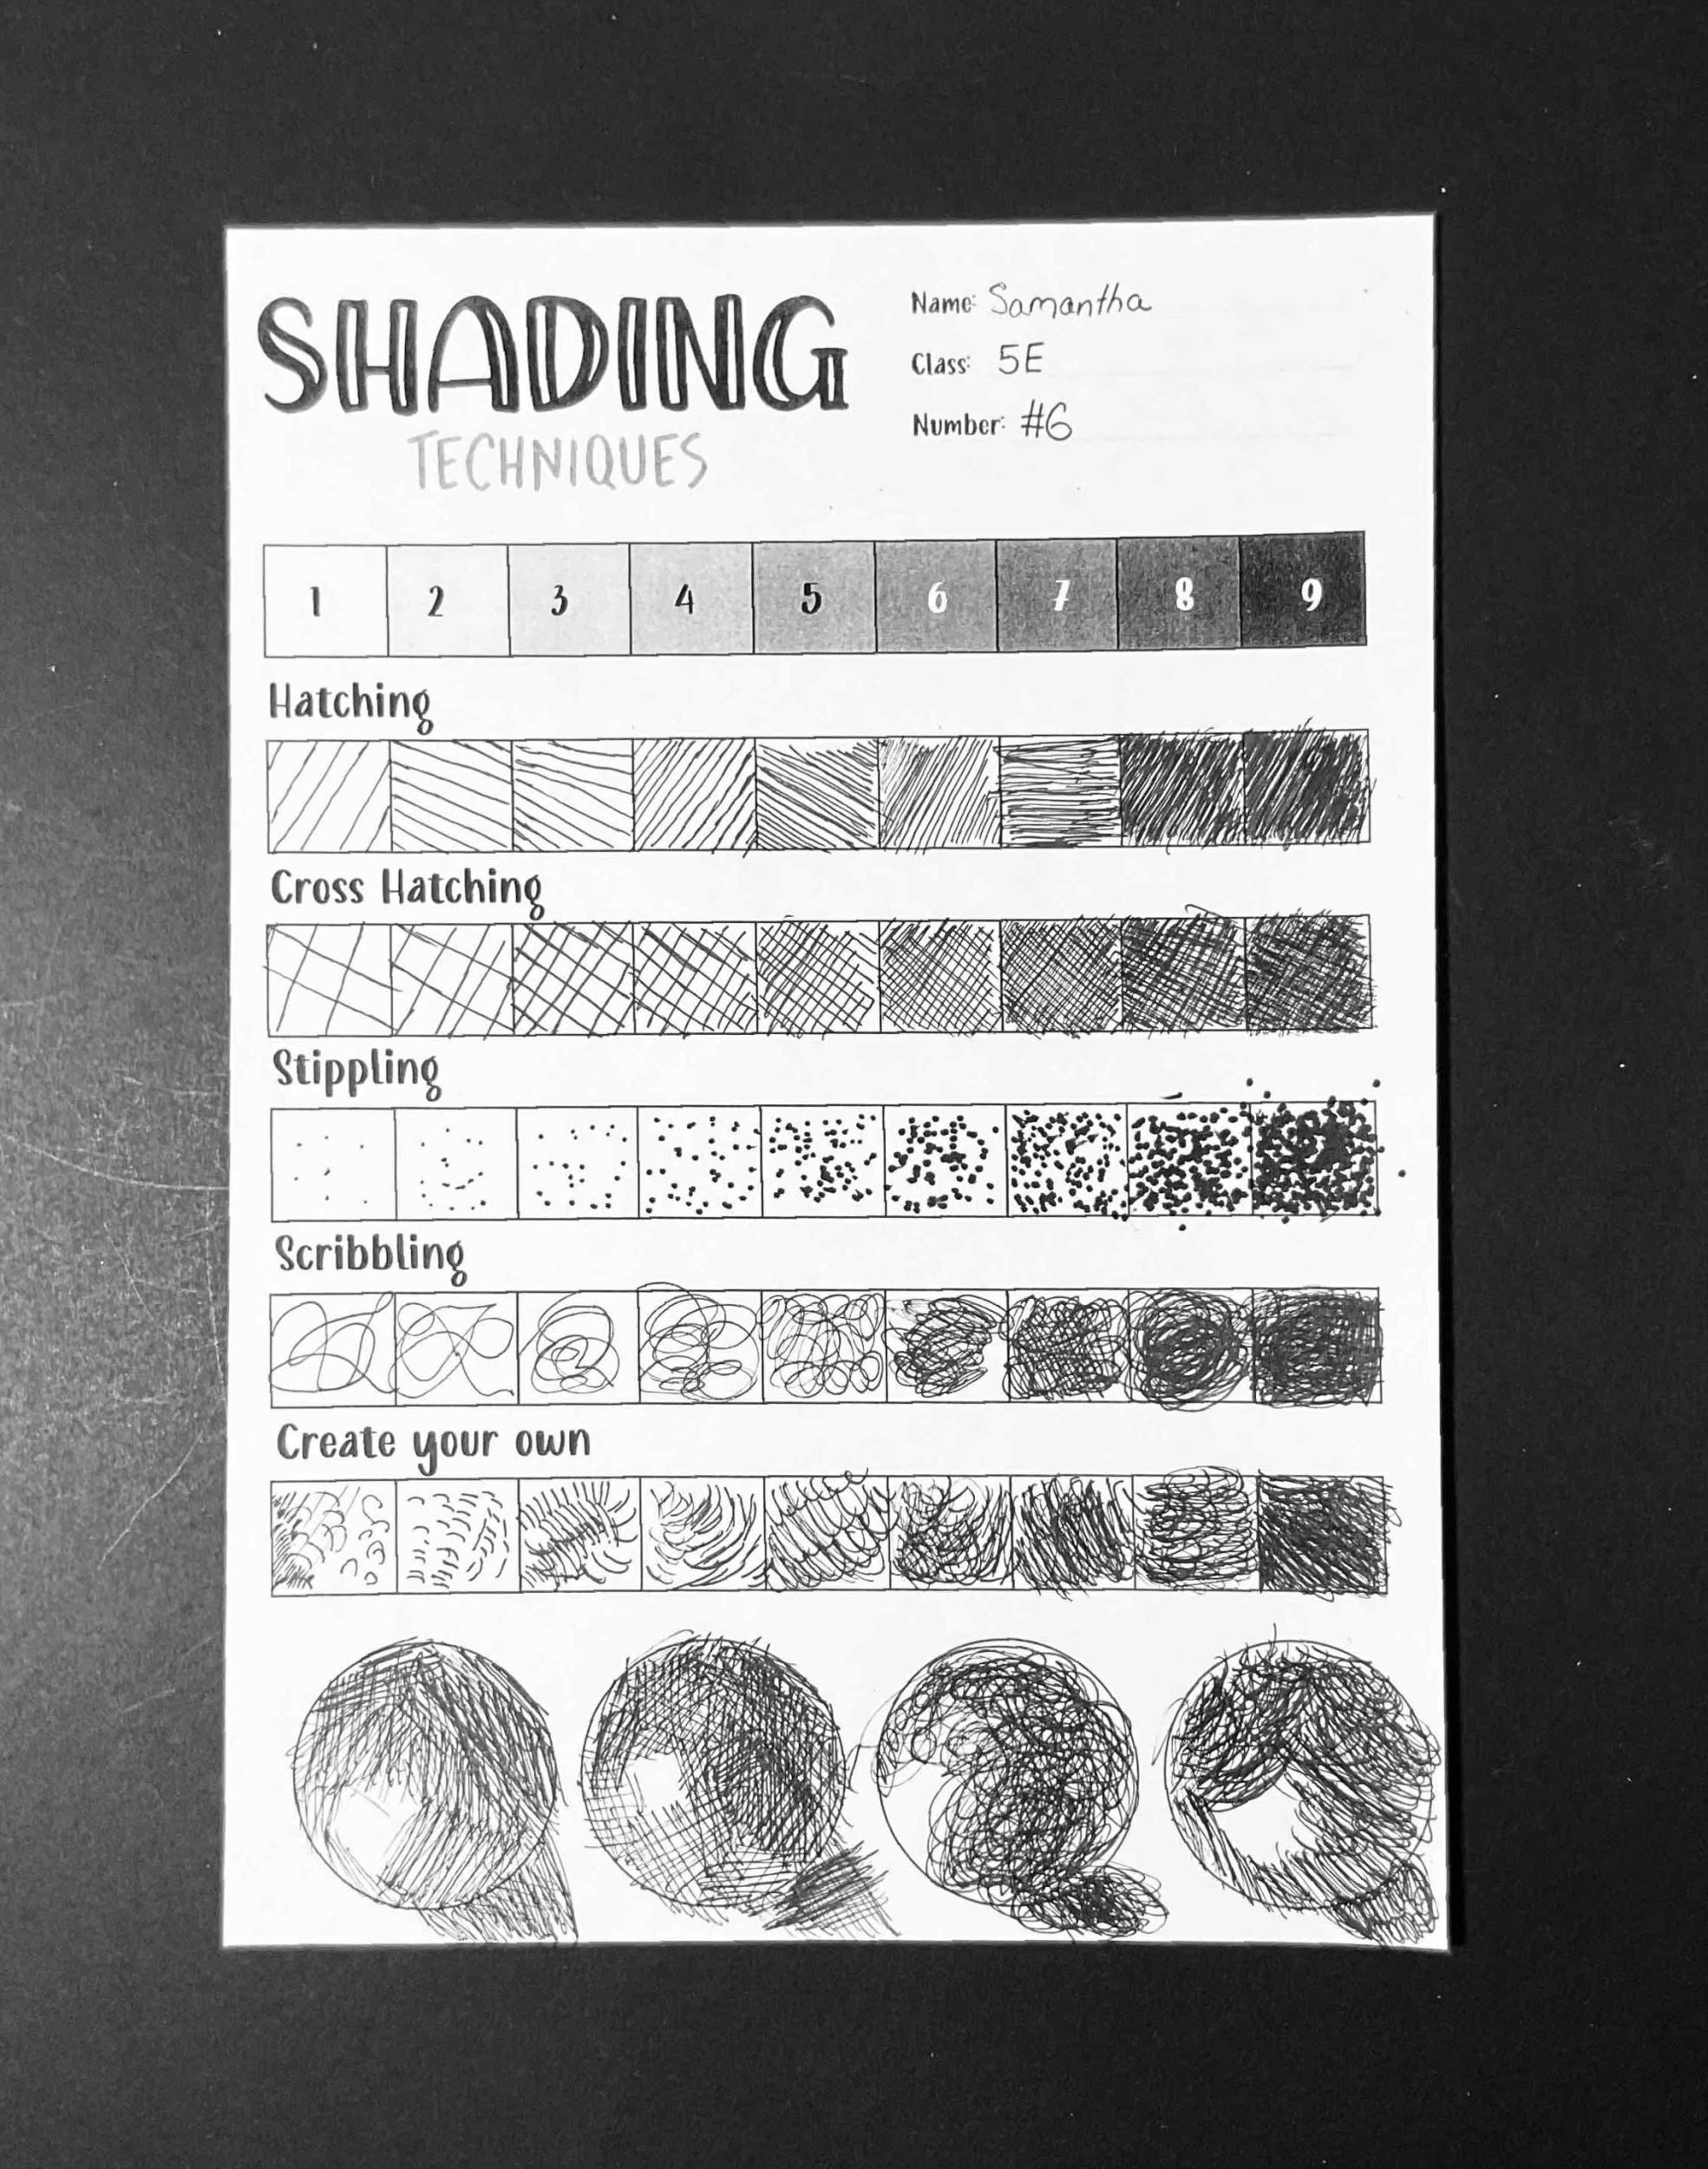 SHADING
TECHNIQUES
Name: Samantha
Class: 5E
Number: #6
1 2 3 4 5 6 7 8 9
Hatching
Cross Hatching
Stippling
Scribbling
Create your own